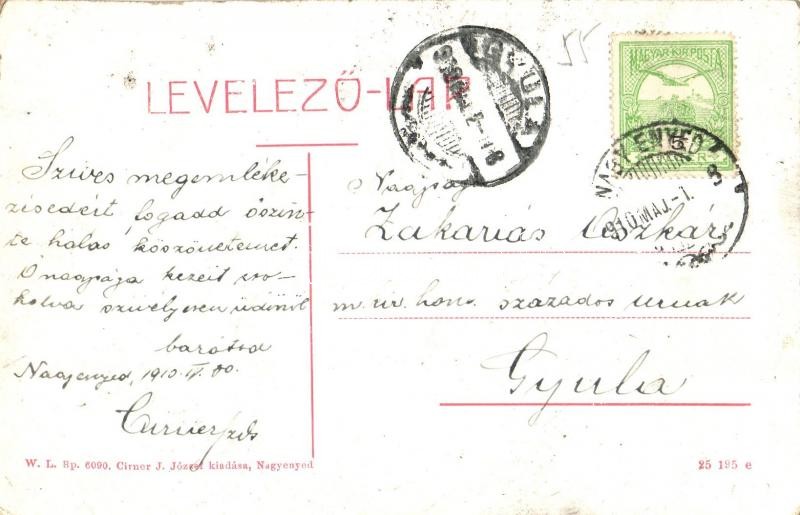 55
MAGYAR KIR. POSTA
5
GYULA
LEVELEZŐ-LAP
NAGY-ENYED
910 MÁJ.-1.
Szives megemléke-
zésedért fogadd őszin-
te hálás köszönetemet.
Őnagysága kezeit cso-
kolva szivélyesen üdvözöl
barátod
Nagyenyed, 1910. IV. 30.
Nagysás
Zakariás Oszkár
m. kir. hon. százados urnak
Gyula
W. L. Bp. 6090. Cirner J. József kiadása, Nagyenyed
25 195 e